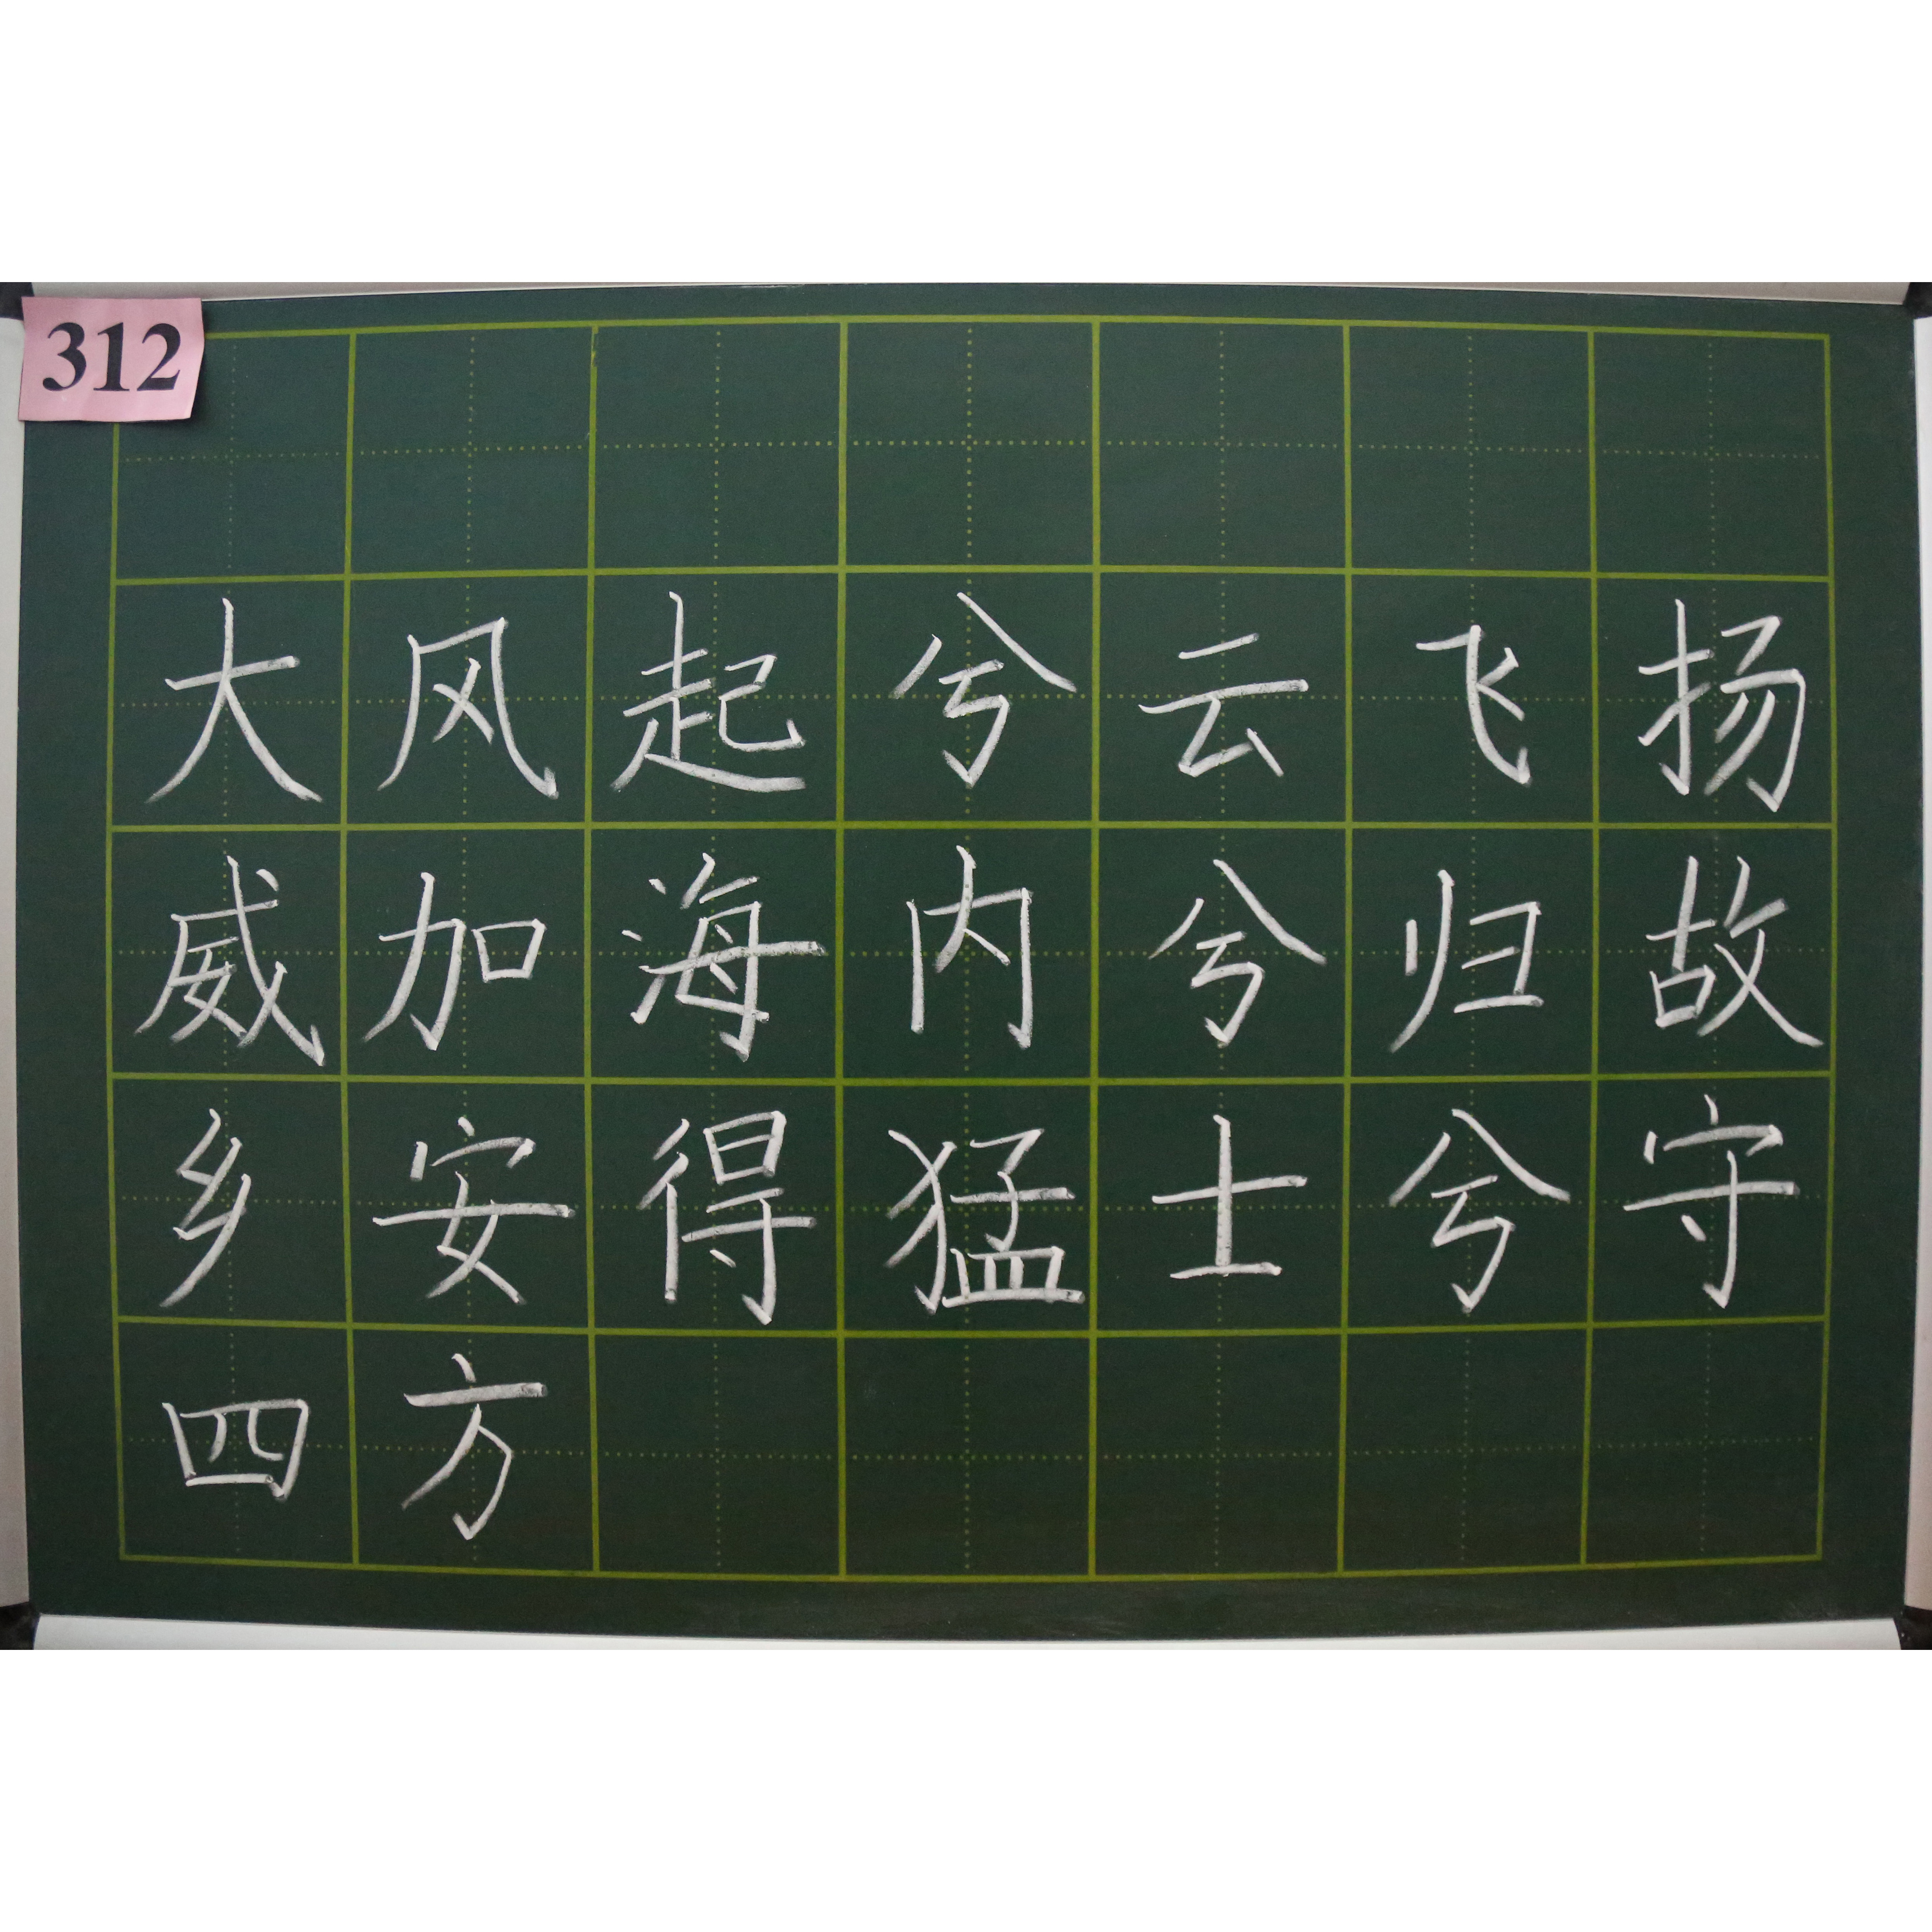 312
大风起兮云飞扬
威加海内兮归故
乡安得猛士兮守
四方